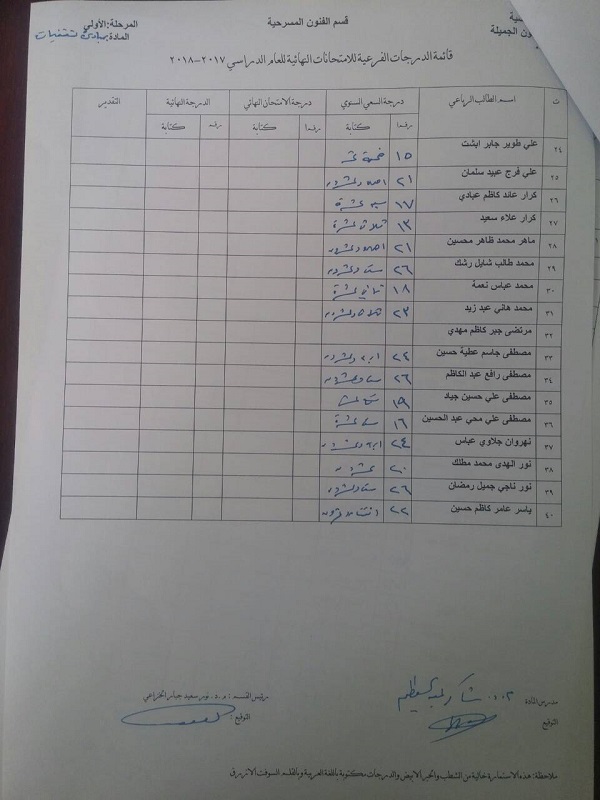 سية
ون الجميلة
قسم الفنون المسرحية
المرحلة:الأولى
المادة:مبادئ تقنيات
قائمة الدرجات الفرعية للامتحانات النهائية للعام الدراسي ٢٠١٧-٢٠١٨
ت اسم الطالب الرباعي درجة السعي السنوي درجة الامتحان النهائي الدرجة النهائية التقدير
رقما كتابة رقما كتابة رقم كتابة
٢٤ علي طوير جابر ابشت ١٥ خمسة عشر
٢٥ علي فرج عبيد سلمان ٢١ احد وعشرون
٢٦ كرار عائد كاظم عبادي ١٧ سبعة عشرة
٢٧ كرار علاء سعيد ١٣ ثلاثة عشرة
٢٨ ماهر محمد ظاهر محسين ٢١ احد وعشرون
٢٩ محمد طالب شايل رشك ٢٦ ستة وعشرون
٣٠ محمد عباس نعمة ١٨ ثماني عشرة
٣١ محمد هاني عبد زيد ٢٣ ثلاثة وعشرون
٣٢ مرتضى جبر كاظم مهدي
٣٣ مصطفى جاسم عطية حسين ٢٤ اربعة وعشرون
٣٤ مصطفى رافع عبد الكاظم ٢٦ ستة وعشرون
٣٥ مصطفى علي حسين جياد ١٩ تسعة عشر
٣٦ مصطفى علي محي عبد الحسين ١٦ ستة عشرة
٣٧ نهروان جلاوي عباس ٢٤ اربعة وعشرون
٣٨ نور الهدى محمد مطلك ٢٠ عشرون
٣٩ نور ناجي جميل رمضان ٢٦ ستة وعشرون
٤٠ ياسر عامر كاظم حسين ٢٢ اثنان وعشرون
مدرس المادة
التوقيع
رئيس القسم : م.د. نور سعيد جبار الخزاعي
التوقيع :
ملاحظة: هذه الاستمارة خالية من الشطب والحبر الابيض والدرجات مكتوبة باللغة العربية وبالقلم السوفت الازرق